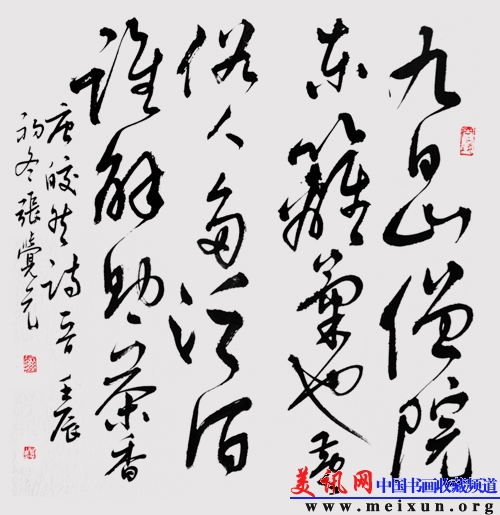 九日山僧院
东籬菊也黄
俗人多泛酒
誰解助茶香
唐皎然诗首壬辰
初冬張覺元
美讯网 中国书画收藏频道
www.meixun.org